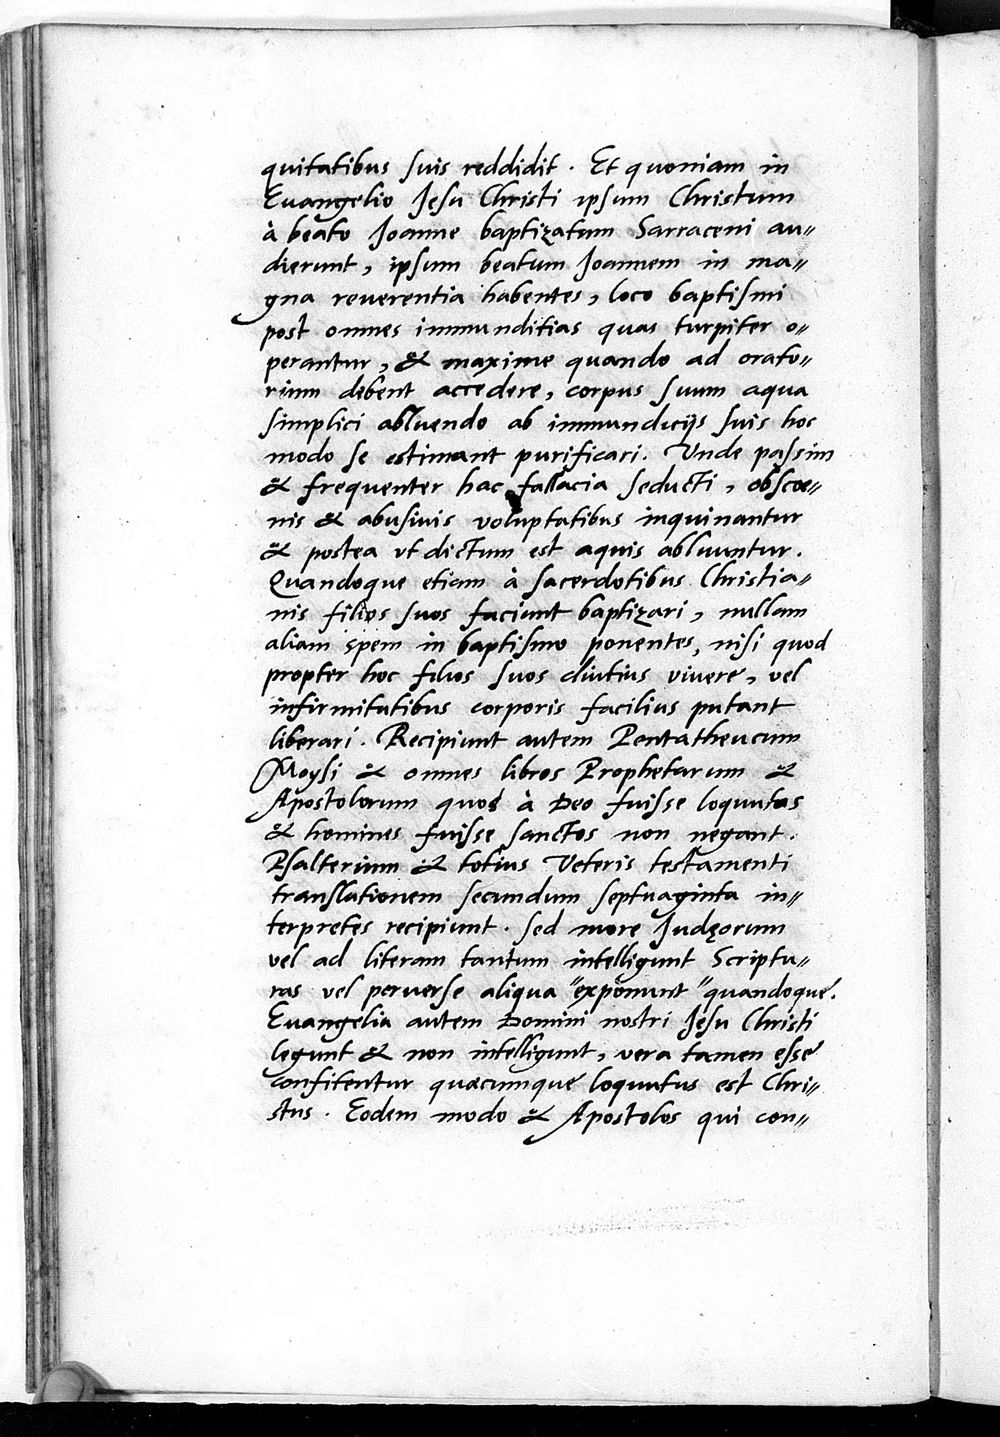 quitatibus suis reddidit. Et quoniam in
Euangelio Jesu Christi ipsum Christum
à beato Joanne baptizatum Sarraceni au„
dierunt, ipsum beatum Joannem in ma„
gna reuerentia habentes, loco baptismi
post omnes immunditias quas turpiter o„
perantur, & maxime quando ad orato„
rium debent accedere, corpus suum aqua
simplici abluendo ab immundicijs suis hoc
modo se estimant purificari. Unde passim
& frequenter hac fallacia seducti, obscoe„
nis & abusiuis voluptatibus inquinantur
& postea vt dictum est aquis abluuntur.
Quandoque etiam à sacerdotibus Christia„
nis filios suos faciunt baptizari, nullam
aliam spem in baptismo ponentes, nisi quod
propter hoc filios suos diutius vivere, vel
infirmitatibus corporis facilius putant
liberari. Recipiunt autem Pentatheucum
Moysi & omnes libros Prophetarum &
Apostolorum quos à Deo fuisse loquutos
& homines fuisse sanctos non negant.
Psalterium & totius Veteris testamenti
translationem secundum septuaginta in„
terpretes recipiunt. Sed more Judęorum
vel ad literam tantum intelligunt Scriptu„
ras vel peruerse aliqua "exponunt "quandoque.
Euangelia autem Domini nostri Jesu Christi
legunt & non intelligunt, vera tamen esse
confitentur quaecumque loquutus est Chri„
stus. Eodem modo & Apostolos qui con„